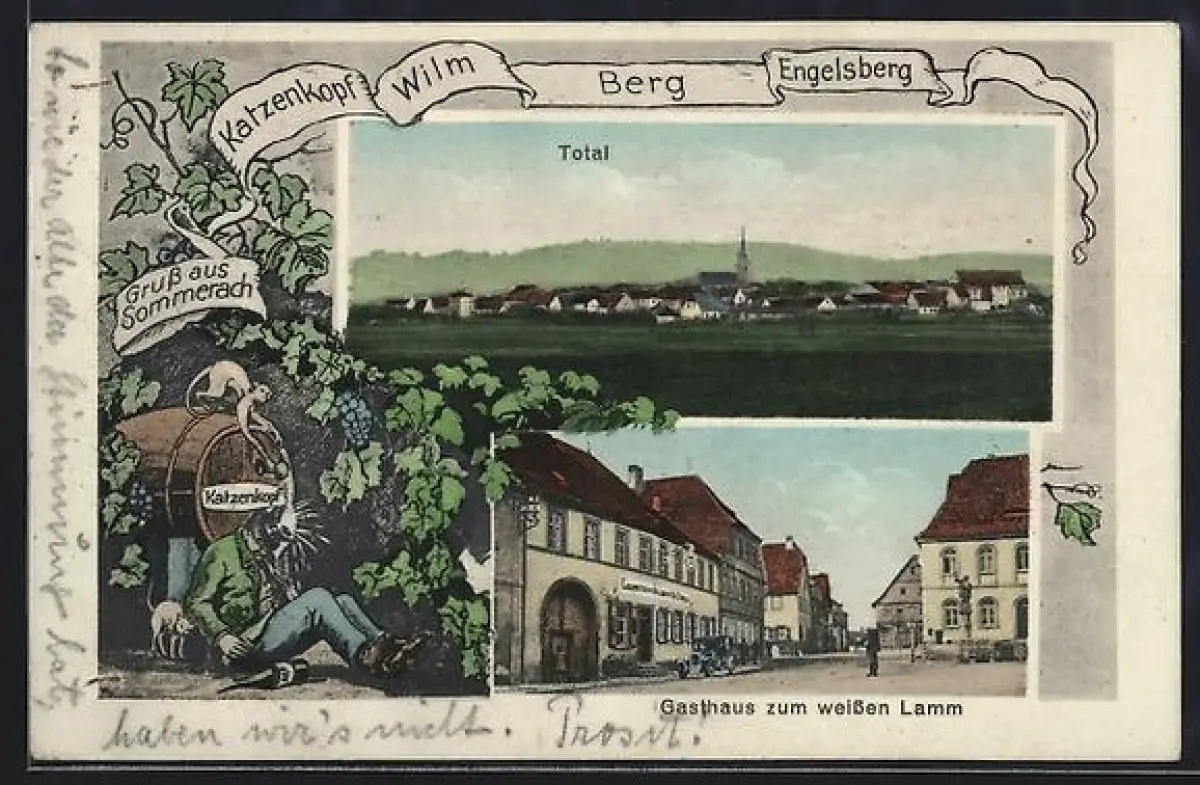 Katzenkopf Wilm Berg Engelsberg
Total
Gruß aus
Sommerach
Katzenkopf
Gasthaus zum weißen Lamm
wie der alte der Stimmung hat,
haben wir's nicht. Prosit!